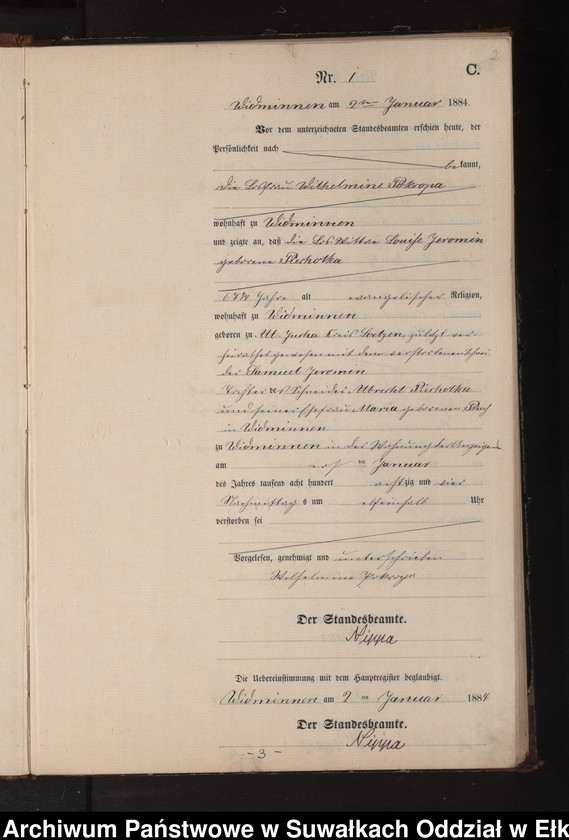 2
Nr. 1 C.
Widminnen am 2ten Januar 1884.
Vor dem unterzeichneten Standesbeamten erschien heute, der
Persönlichkeit nach
bekannt,
die Losfrau Wilhelmine Pokropa
wohnhaft zu Widminnen
und zeigte an, daß die Los Wittwe Louise Jeromin
geborene Piechotka
Jahre alt evangelischer Religion,
wohnhaft zu Widminnen
geboren zu Alt Jucha Kreis Loetzen, zuletzt ver-
heirathet gewesen mit dem verstorbenen Schnei-
der Samuel Jeromin
Tochter des Schneider Albrecht Piechotka
und seiner Ehefrau Maria geborenen
in Widminnen
zu Widminnen in der Wohnung der Anzeigende
am ten Januar
des Jahres tausend acht hundert achtzig und vier
Nachmittags um Uhr
verstorben sei
Vorgelesen, genehmigt und unterschrieben
Wilhelmine Pokropa
Der Standesbeamte.
Nippa
Die Uebereinstimmung mit dem Hauptregister beglaubigt.
Widminnen am 2ten Januar 1884
Der Standesbeamte.
Nippa
- 3 -
Archiwum Państwowe w Suwałkach Oddział w Ełk